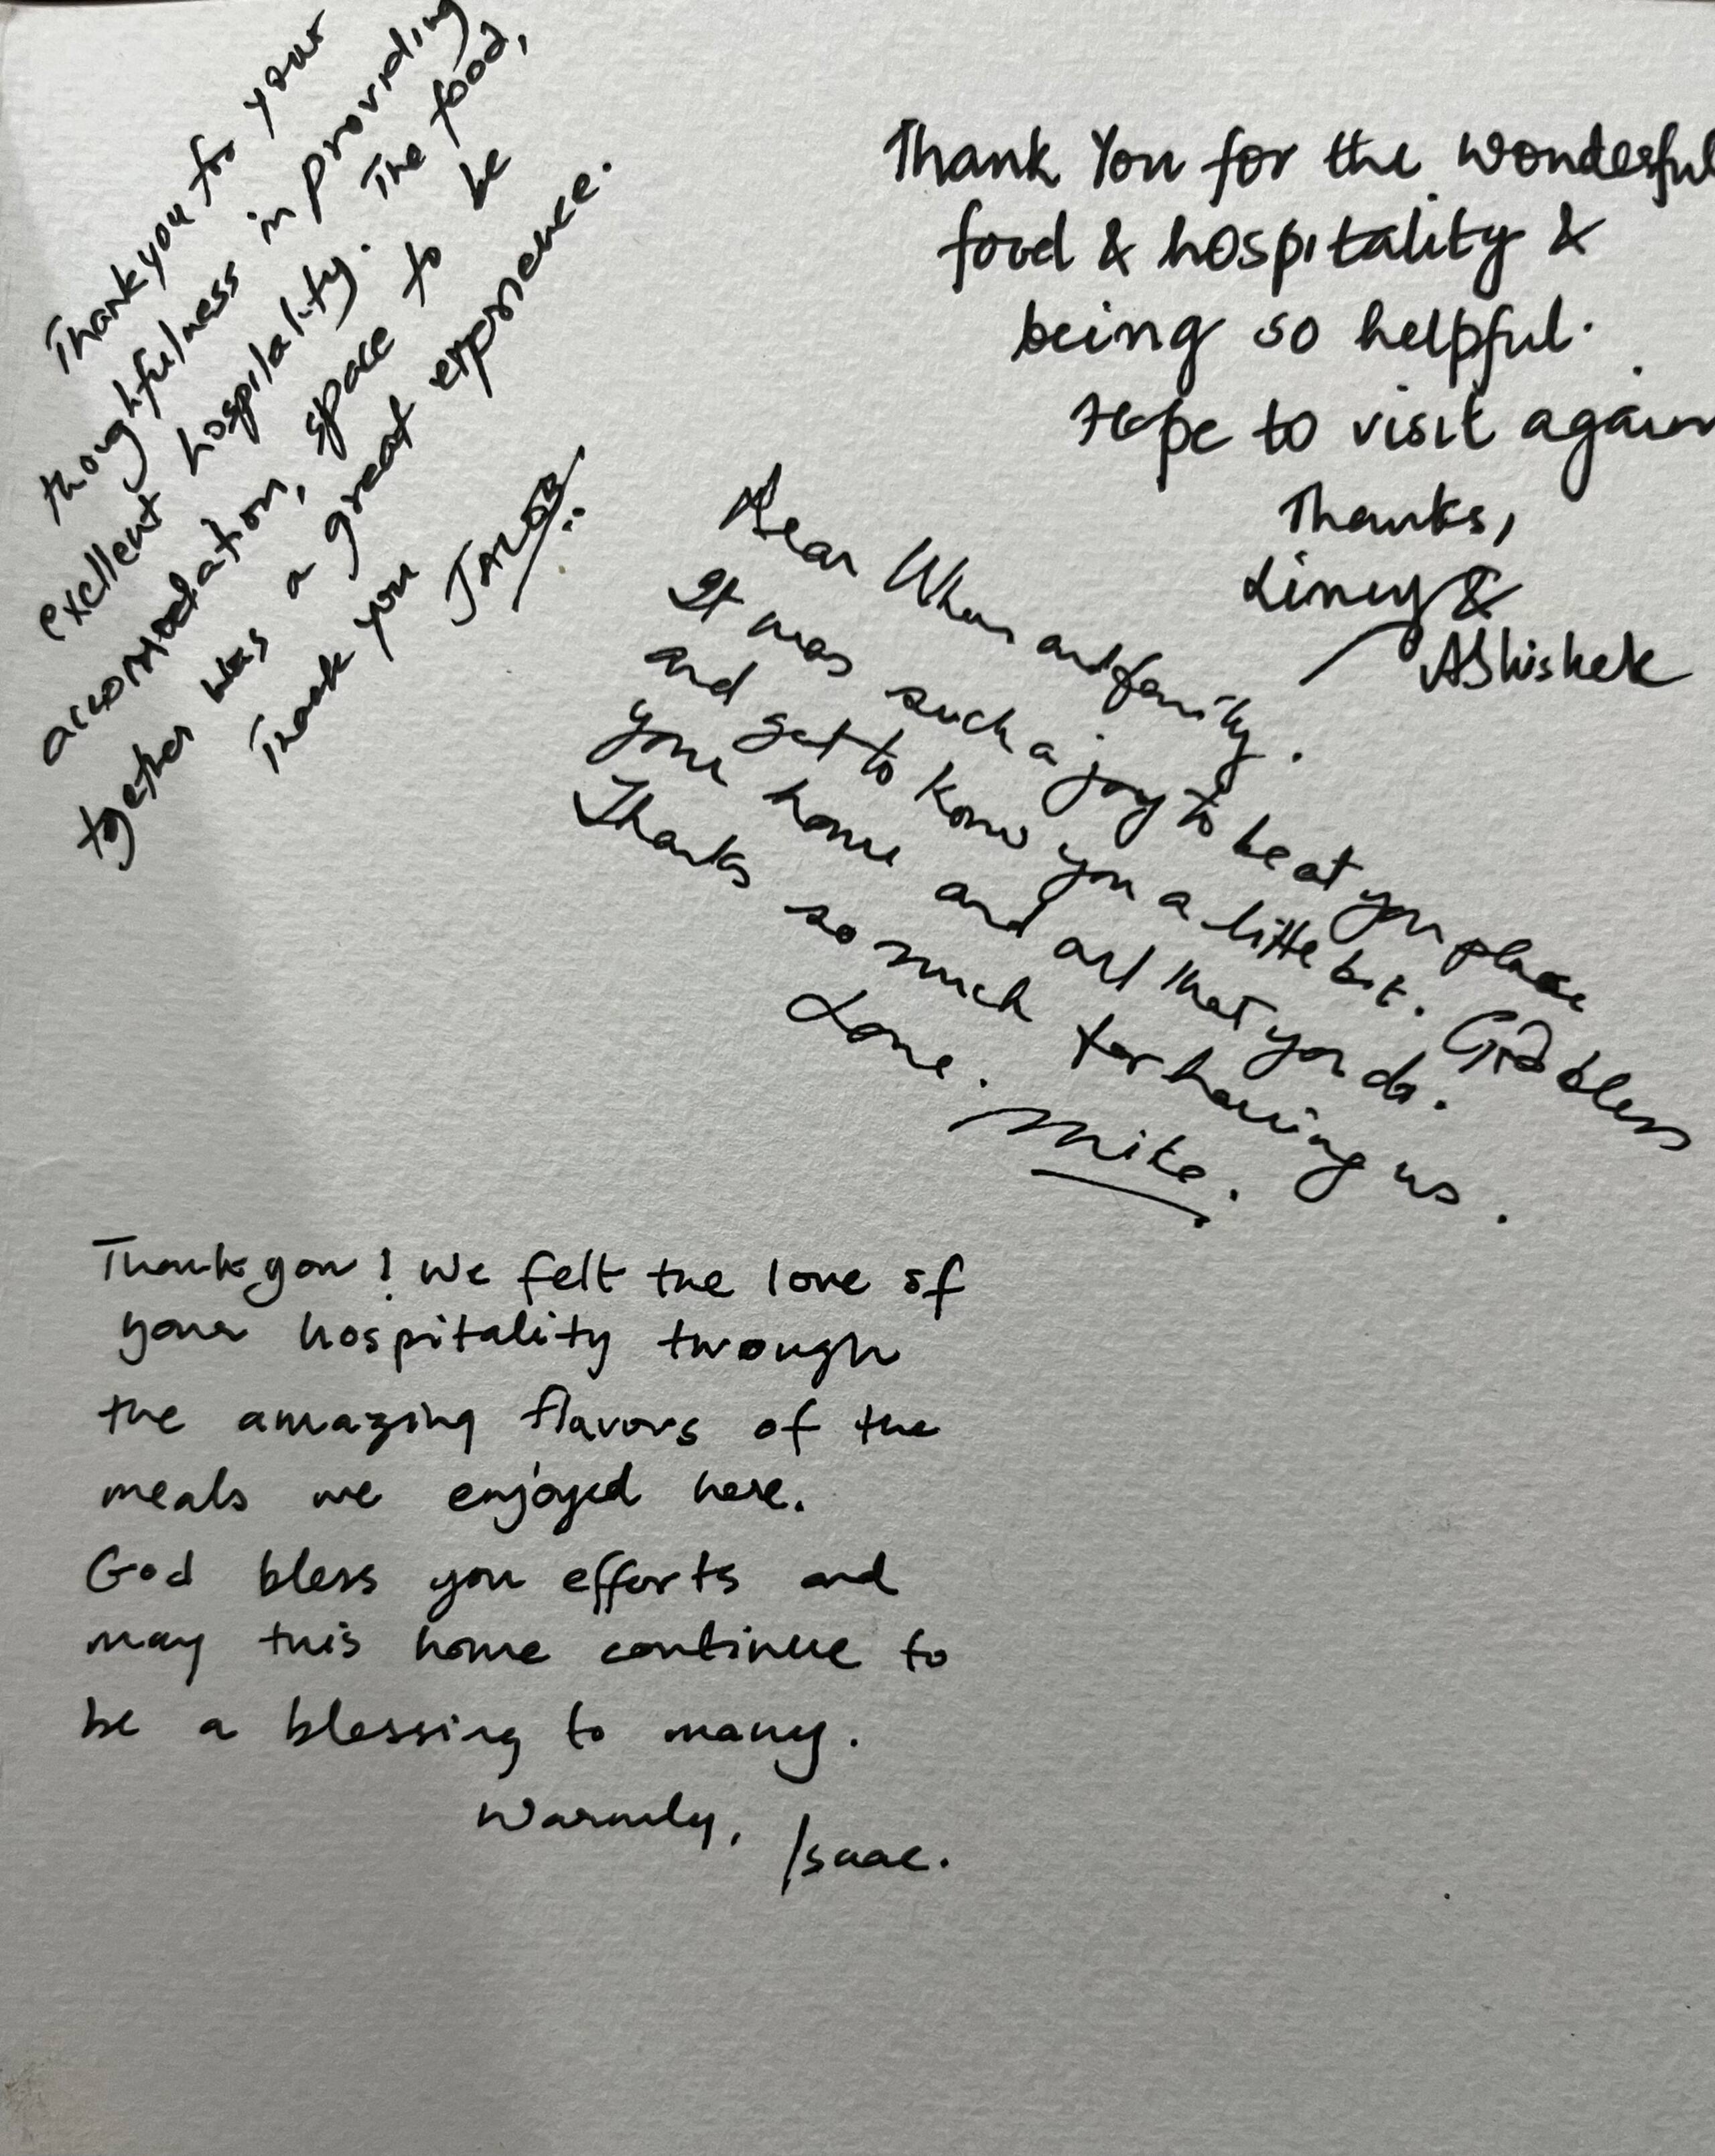 Thank you for your
thoughfulness in providing
excellent hospitality. The food,
accomodation, space to be
together was a great experience.
Thank you
JACOB
Thank You for the wonderful
food & hospitality &
being so helpful.
Hope to visit again
Thanks,
Lincy &
Abhishek
Dear and family.
It was such a joy to be at your place
and get to know you a little bit. God bless
your home and all that you do.
Thanks so much for having us.
Love.
Mike.
Thank you! We felt the love of
your hospitality through
the amazing flavors of the
meals we enjoyed here.
God bless you efforts and
may this home continue to
be a blessing to many.
Warmly,
Isaac.